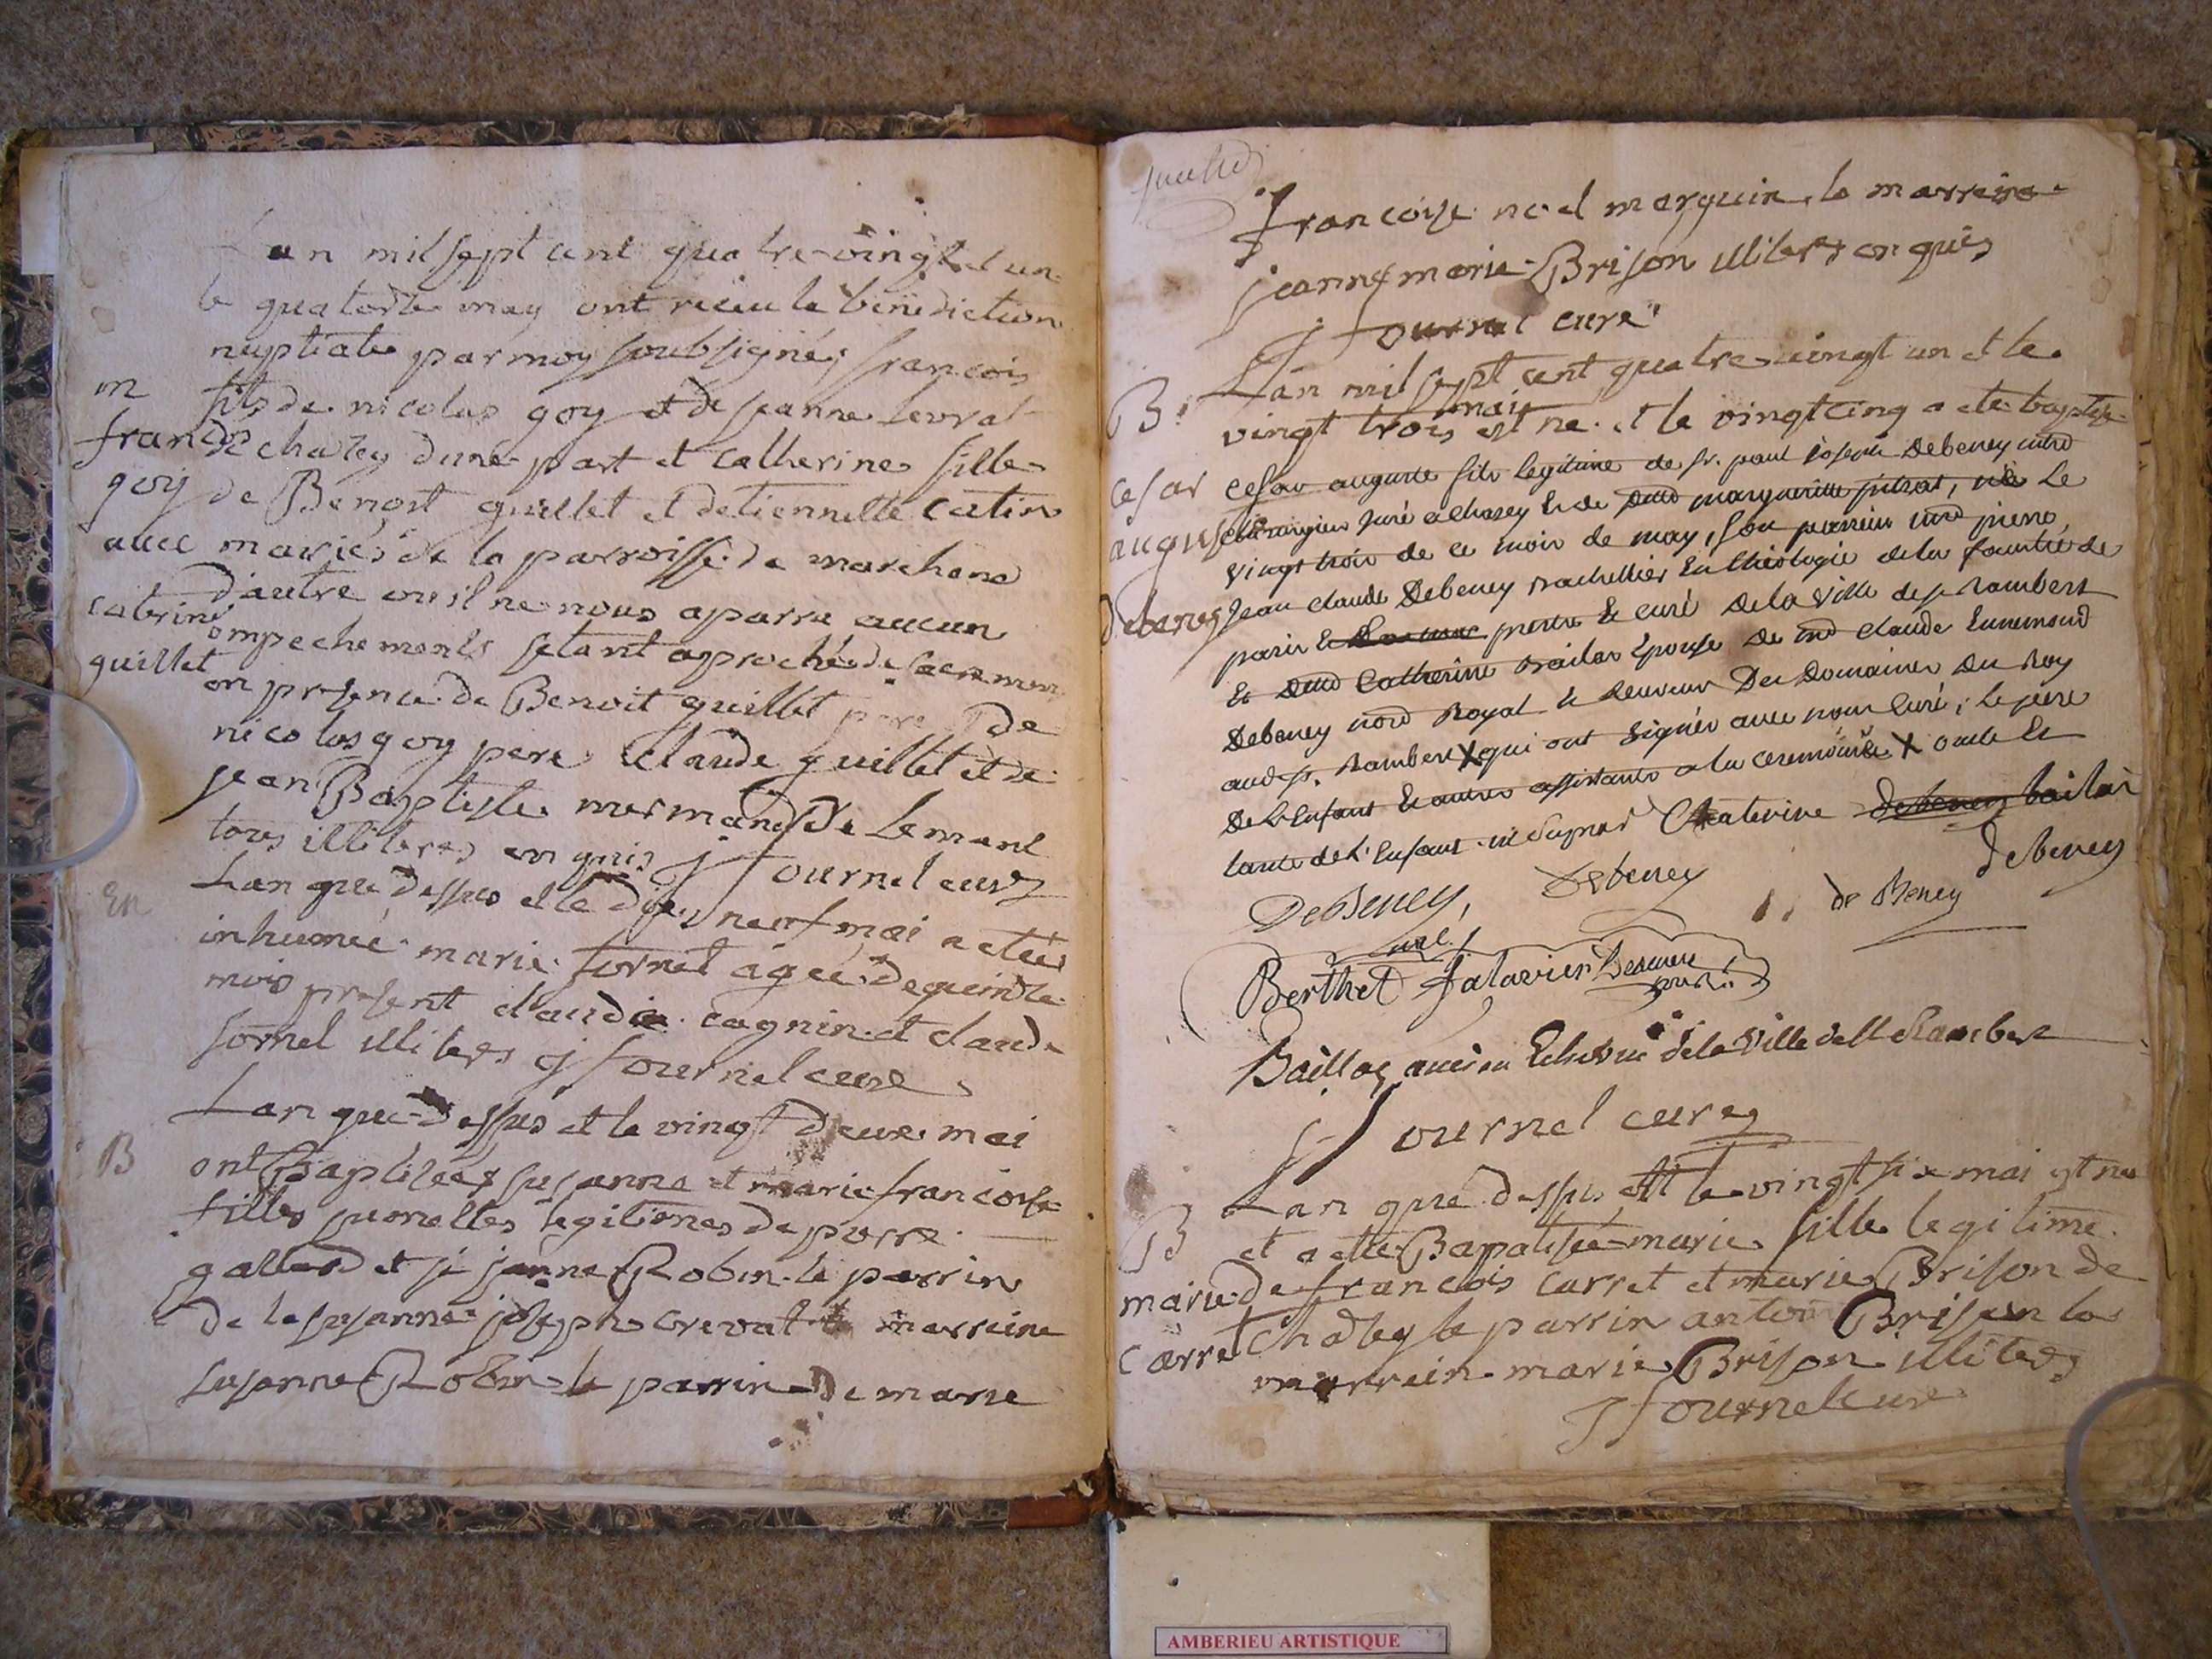 Lan mil sept cent quatre-vingt et un
le quatorze may ont reciu la bénédiction
nuptiale par moy soubsigné, francois
m
fils de nicolas goy et de jeanne levrat
francois
de chazey dune part et catherine fille
goy
de Benoit guillet et detiennette catin
avec
mariés de la parroisse de marchand
d'autre ou il ne nous aparru aucun
catrine
empechements setant aproché de sacremen
guillet
en presence de Benoit guillet pere de
nicolas goy pere claude guillet et de
jean Baptiste mermand de Lemant
tous illiteres enquis j fournel curé
En
Lan que dessus et le dix neuf mai a etée
inhumée marie fornel agée de quinze
mois present claude cagnin et claude
fornel illiteres j fournel curé
Lan que dessus et le vingt deux mai
B
ont Baptisées susanne et marie francoise
filles jumelles legitimes de pierre
galland et de janne Robin le parrin
de la susanne joseph crevat la marreine
susanne Robin le parrin de marie
francoise noel marguin la marreine
jeanne marie Brison illiteres enquis
J fournel curé
B
Lan mil sept cent quatre vingt un et le
vingt trois mai est ne et le vingt cinq a ete baptisé
cesar
cesar auguste fils legitime de sr. paul joseph Debeney md
auguste
chirurgien juré a chazey et de marguerite, né Le
vingt trois de ce mois de may, son parrein pierre
debeney
jean claude Debeney bachellier en théologie de la faculté de
paris et prestre et curé de la ville de st Rambert
et Catherine bailac Epouse de claude Ennemond
Debeney Royal et Receveur Des Domaines Du Roy
aud st. Rambert X qui ont signés avec nous curé, le pere
De L'Enfant et autres assistants a la ceremonie X oncle et
tante de L'Enfant Chaterine debeney bailac
DeBeney, Debeney de Beney debeney
curé
Berthet falavier
Baillac ancien Echevin de la Ville de st Rambert
J fournel curé
B
Lan que dessus et le vingt six mai est née
et a ete Bapatisée marie fille legitime
marie
de francois carret et marie Brison de
carret
Chazey le parrin antoin Brison la
marrein marie Brison illiteres
J fournel curé
AMBERIEU ARTISTIQUE